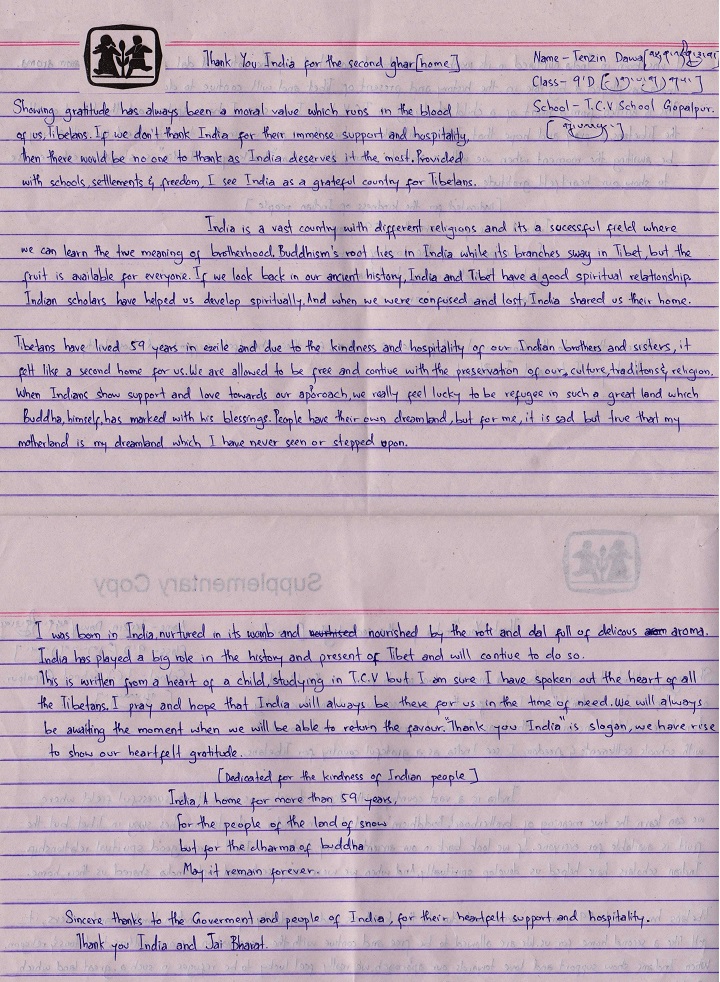 Thank You India for the second ghar[home]
Name - Tenzin Dawa
Class - 9'D
School - T.C.V School Gopalpur.
Showing gratitude has always been a moral value which runs in the blood
of us, Tibetans. If we don't thank India for their immense support and hospitality,
then there would be no one to thank as India deserves it the most. Provided
with schools, settlements & freedom, I see India as a grateful country for Tibetans.
India is a vast country with different religions and its a sucessful field where
we can learn the true meaning of brotherhood. Buddhism's root lies in India while its branches sway in Tibet, but the
fruit is available for everyone. If we look back in our ancient history, India and Tibet have a good spiritual relationship.
Indian scholars have helped us develop spiritually, And when we were confused and lost, India shared us their home.
Tibetans have lived 59 years in exile and due to the kindness and hospitality of our Indian brothers and sisters, it
felt like a second home for us. We are allowed to be free and contiue with the preservation of our, culture, traditons & religion.
When Indians show support and love towards our approach, we really feel lucky to be refugee in such a great land which
Buddha, himself, has marked with his blessings. People have their own dreamland, but for me, it is sad but true that my
motherland is my dreamland which I have never seen or stepped upon.
Supplementary Copy
I was born in India, nurtured in its womb and nourished by the roti and dal full of delicous aroma.
India has played a big role in the history and present of Tibet and will contiue to do so.
This is written from a heart of a child, studying in T.C.V but I am sure I have spoken out the heart of all
the Tibetans. I pray and hope that India will always be there for us in the time of need. We will always
be awaiting the moment when we will be able to return the favour. "Thank you India" is slogan, we have rise
to show our heartfelt gratitude.
[Dedicated for the kindness of Indian people]
India, A home for more than 59 years,
for the people of the land of snow
but for the dharma of buddha
May it remain forever.
Sincere thanks to the Goverment and people of India, for their heartfelt support and hospitality.
Thank you India and Jai Bharat.